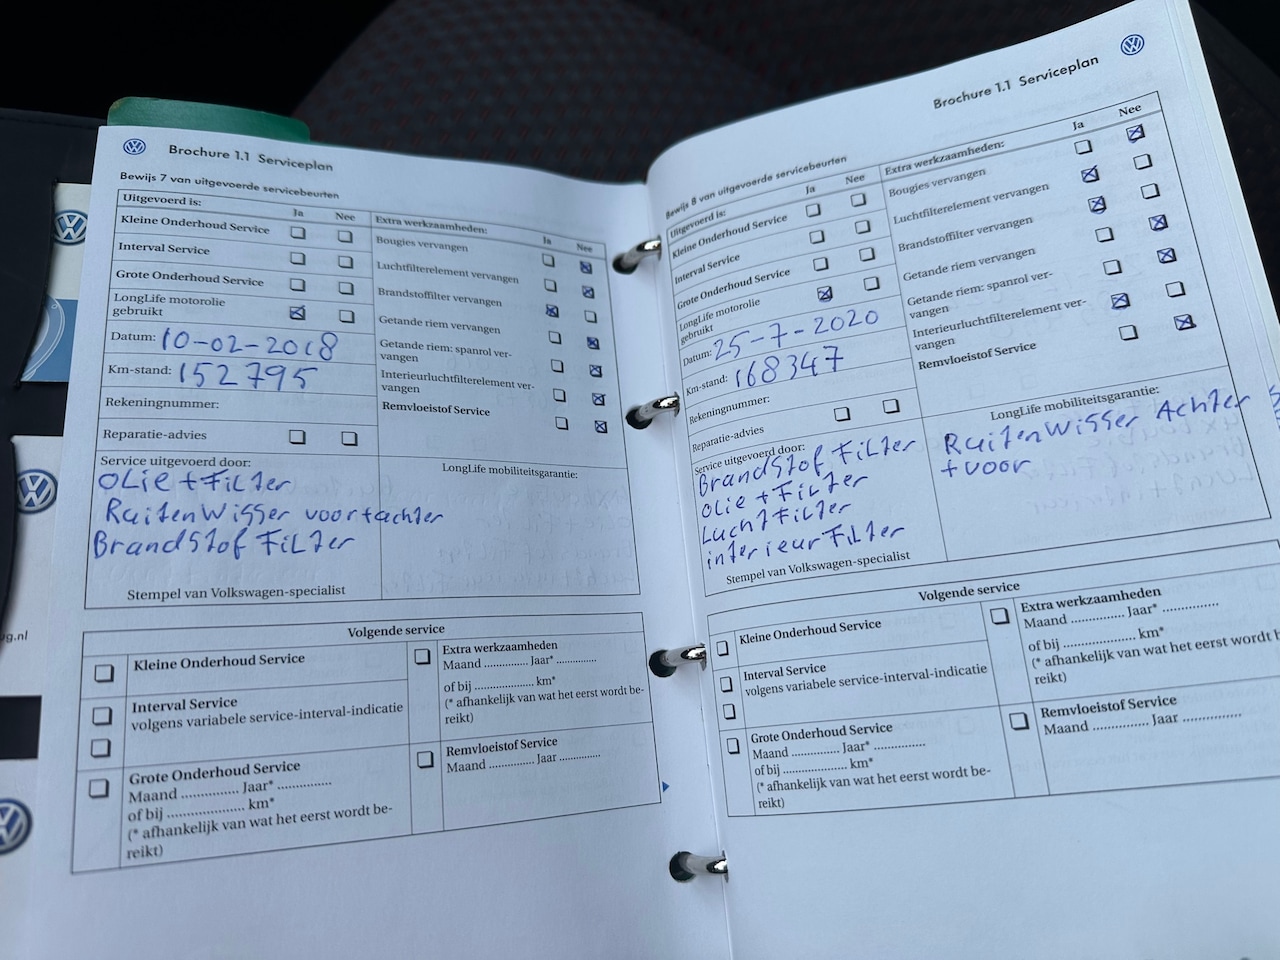 Brochure 1.1 Serviceplan
Bewijs 7 van uitgevoerde servicebeurten
Uitgevoerd is:
Ja Nee
Kleine Onderhoud Service
Interval Service
Grote Onderhoud Service
LongLife motorolie
gebruikt
Datum: 10-02-2018
Km-stand: 152795
Rekeningnummer:
Reparatie-advies
Extra werkzaamheden:
Ja Nee
Bougies vervangen
Luchtfilterelement vervangen
Brandstoffilter vervangen
Getande riem vervangen
Getande riem: spanrol ver-
vangen
Interieurluchtfilterelement ver-
vangen
Remvloeistof Service
Service uitgevoerd door:
OLie + FiLter
RuitenWisser voor+achter
BrandStof FiLter
Stempel van Volkswagen-specialist
LongLife mobiliteitsgarantie:
Volgende service
Kleine Onderhoud Service
Interval Service
volgens variabele service-interval-indicatie
Grote Onderhoud Service
Maand .............. Jaar* .............
of bij .................... km*
(* afhankelijk van wat het eerst wordt be-
reikt)
Extra werkzaamheden
Maand ............. Jaar* ............
of bij .................. km*
(* afhankelijk van wat het eerst wordt be-
reikt)
Remvloeistof Service
Maand ............. Jaar ............
Brochure 1.1 Serviceplan
Bewijs 8 van uitgevoerde servicebeurten
Uitgevoerd is:
Ja Nee
Kleine Onderhoud Service
Interval Service
Grote Onderhoud Service
LongLife motorolie
gebruikt
Datum: 25-7-2020
Km-stand: 168347
Rekeningnummer:
Reparatie-advies
Extra werkzaamheden:
Ja Nee
Bougies vervangen
Luchtfilterelement vervangen
Brandstoffilter vervangen
Getande riem vervangen
Getande riem: spanrol ver-
vangen
Interieurluchtfilterelement ver-
vangen
Remvloeistof Service
Service uitgevoerd door:
BrandStof FiLter
OLie + FiLter
LuchtFiLter
interieurFiLter
Stempel van Volkswagen-specialist
LongLife mobiliteitsgarantie:
RuitenWisser Achter
+voor
Volgende service
Kleine Onderhoud Service
Interval Service
volgens variabele service-interval-indicatie
Grote Onderhoud Service
Maand ............. Jaar* .............
of bij .................... km*
(* afhankelijk van wat het eerst wordt be-
reikt)
Extra werkzaamheden
Maand .............. Jaar* ..............
of bij .................... km*
(* afhankelijk van wat het eerst wordt b
reikt)
Remvloeistof Service
Maand .............. Jaar ...............
ug.nl